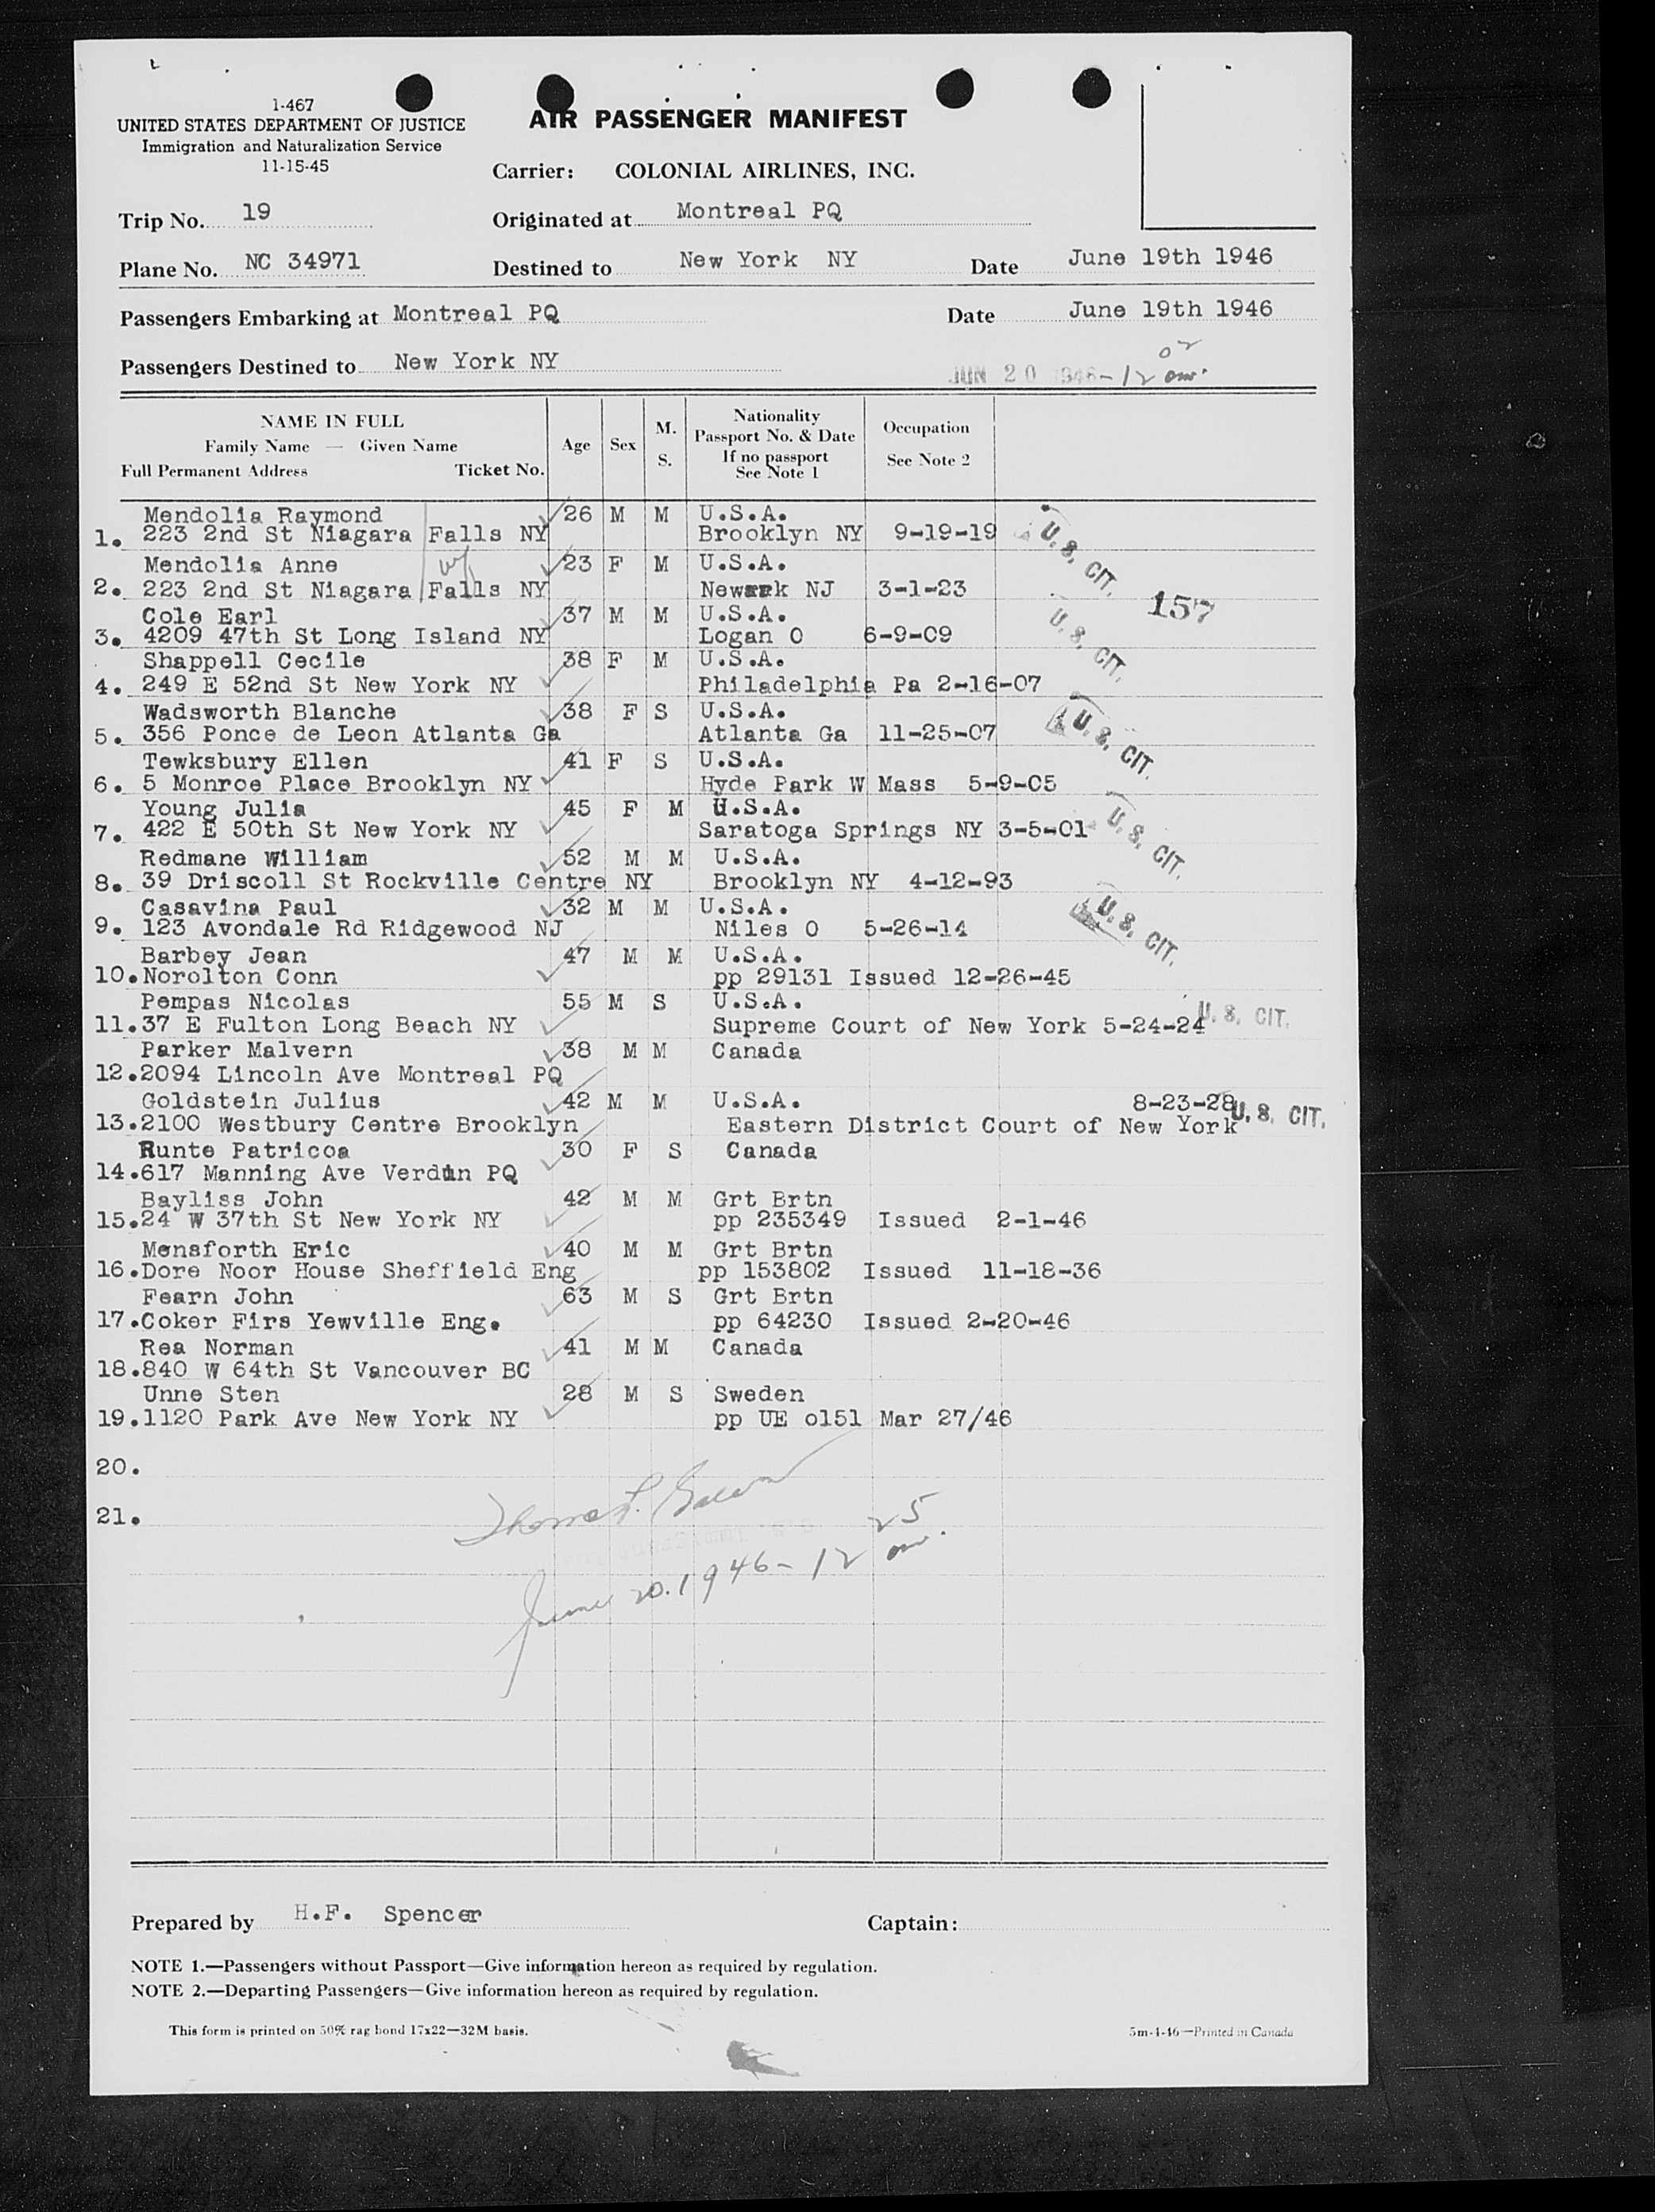 1-467
UNITED STATES DEPARTMENT OF JUSTICE
Immigration and Naturalization Service
11-15-45
AIR PASSENGER MANIFEST
Carrier: COLONIAL AIRLINES, INC.
Trip No. 19
Originated at Montreal PQ
Plane No. NC 34971
Destined to New York NY
Date June 19th 1946
Passengers Embarking at Montreal PQ
Date June 19th 1946
Passengers Destined to New York NY
JUN 20 1946 - 12 02 am.
NAME IN FULL
Family Name — Given Name
Full Permanent Address Ticket No.
Age
Sex
M. S.
Nationality
Passport No. & Date
If no passport
See Note 1
Occupation
See Note 2
Mendolia Raymond 26 M M U.S.A.
1. 223 2nd St Niagara Falls NY Brooklyn NY 9-19-19
U. S. CIT.
Mendolia Anne 23 F M U.S.A.
2. 223 2nd St Niagara Falls NY Newark NJ 3-1-23
157
Cole Earl 37 M M U.S.A.
3. 4209 47th St Long Island NY Logan O 6-9-09
U. S. CIT.
Shappell Cecile 38 F M U.S.A.
4. 249 E 52nd St New York NY Philadelphia Pa 2-16-07
Wadsworth Blanche 38 F S U.S.A.
5. 356 Ponce de Leon Atlanta Ga Atlanta Ga 11-25-07
U. S. CIT.
Tewksbury Ellen 41 F S U.S.A.
6. 5 Monroe Place Brooklyn NY Hyde Park W Mass 5-9-05
Young Julia 45 F M U.S.A.
7. 422 E 50th St New York NY Saratoga Springs NY 3-5-01
U. S. CIT.
Redmane William 52 M M U.S.A.
8. 39 Driscoll St Rockville Centre NY Brooklyn NY 4-12-93
Casavina Paul 32 M M U.S.A.
9. 123 Avondale Rd Ridgewood NJ Niles O 5-26-14
U. S. CIT.
Barbey Jean 47 M M U.S.A.
10. Norolton Conn pp 29131 Issued 12-26-45
Pempas Nicolas 55 M S U.S.A.
11. 37 E Fulton Long Beach NY Supreme Court of New York 5-24-24
U. S. CIT.
Parker Malvern 38 M M Canada
12. 2094 Lincoln Ave Montreal PQ
Goldstein Julius 42 M M U.S.A. 8-23-28
13. 2100 Westbury Centre Brooklyn Eastern District Court of New York
U. S. CIT.
Runte Patricoa 30 F S Canada
14. 617 Manning Ave Verdun PQ
Bayliss John 42 M M Grt Brtn
15. 24 W 37th St New York NY pp 235349 Issued 2-1-46
Mensforth Eric 40 M M Grt Brtn
16. Dore Noor House Sheffield Eng pp 153802 Issued 11-18-36
Fearn John 63 M S Grt Brtn
17. Coker Firs Yewville Eng. pp 64230 Issued 2-20-46
Rea Norman 41 M M Canada
18. 840 W 64th St Vancouver BC
Unne Sten 28 M S Sweden
19. 1120 Park Ave New York NY pp UE o151 Mar 27/46
20.
21.
June 20. 1946 - 12 25 am.
Prepared by H.F. Spencer
Captain:
NOTE 1.—Passengers without Passport—Give information hereon as required by regulation.
NOTE 2.—Departing Passengers—Give information hereon as required by regulation.
This form is printed on 50% rag bond 17x22—32M basis.
5m-4-46—Printed in Canada